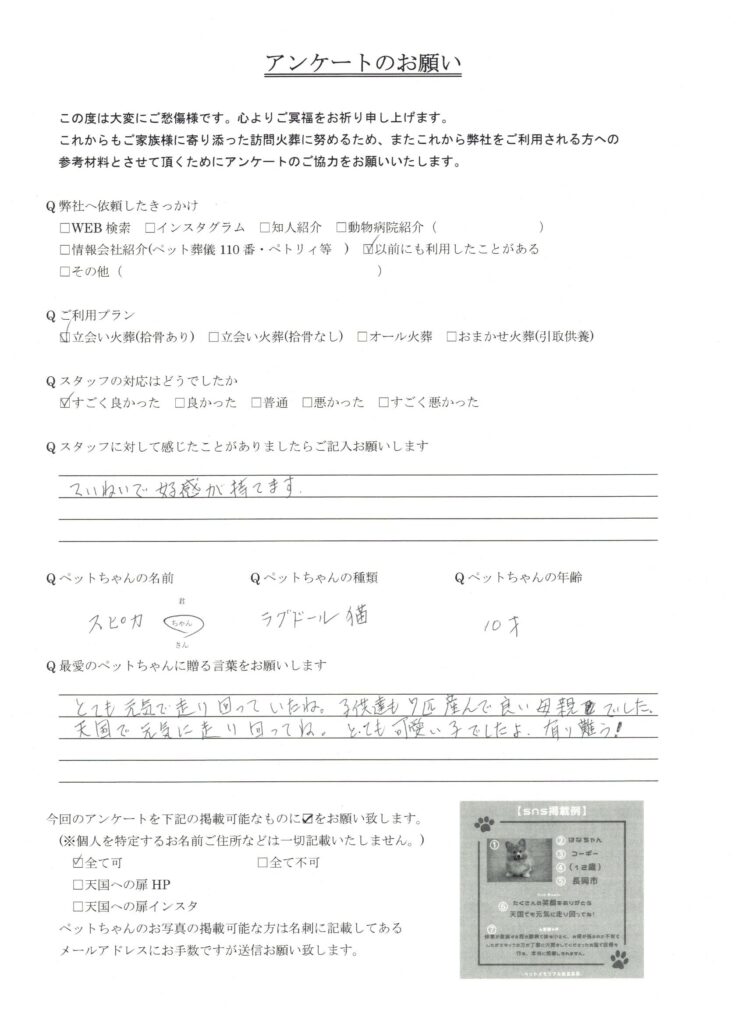 アンケートのお願い
この度は大変にご愁傷様です。心よりご冥福をお祈り申し上げます。
これからもご家族様に寄り添った訪問火葬に努めるため、またこれから弊社をご利用される方への
参考材料とさせて頂くためにアンケートのご協力をお願いいたします。
Q 弊社へ依頼したきっかけ
□WEB 検索 □インスタグラム □知人紹介 □動物病院紹介（ ）
□情報会社紹介(ペット葬儀 110 番・ペトリィ等 ) ☑以前にも利用したことがある
□その他（ ）
Q ご利用プラン
☑立会い火葬(拾骨あり) □立会い火葬(拾骨なし) □オール火葬 □おまかせ火葬(引取供養)
Q スタッフの対応はどうでしたか
☑すごく良かった □良かった □普通 □悪かった □すごく悪かった
Q スタッフに対して感じたことがありましたらご記入お願いします
ていねいで好感が持てます.
Q ペットちゃんの名前 Q ペットちゃんの種類 Q ペットちゃんの年齢
君
スピカ ちゃん ラグドール猫 10才
さん
Q 最愛のペットちゃんに贈る言葉をお願いします
とても元気で走り回っていたね。子供達も7匹産んで良い母親でした、
天国で元気に走り回ってね。とても可愛い子でしたよ.有り難う!
今回のアンケートを下記の掲載可能なものに☑をお願い致します。
(※個人を特定するお名前ご住所などは一切記載いたしません。)
☑全て可 □全て不可
□天国への扉 HP
□天国への扉インスタ
ペットちゃんのお写真の掲載可能な方は名刺に記載してある
メールアドレスにお手数ですが送信お願い致します。
【sns掲載例】
① ② はなちゃん
③ コーギー
④ （12歳）
⑤ 長岡市
⑥ たくさんの笑顔をありがとう
天国でも元気に走り回ってね！
⑦